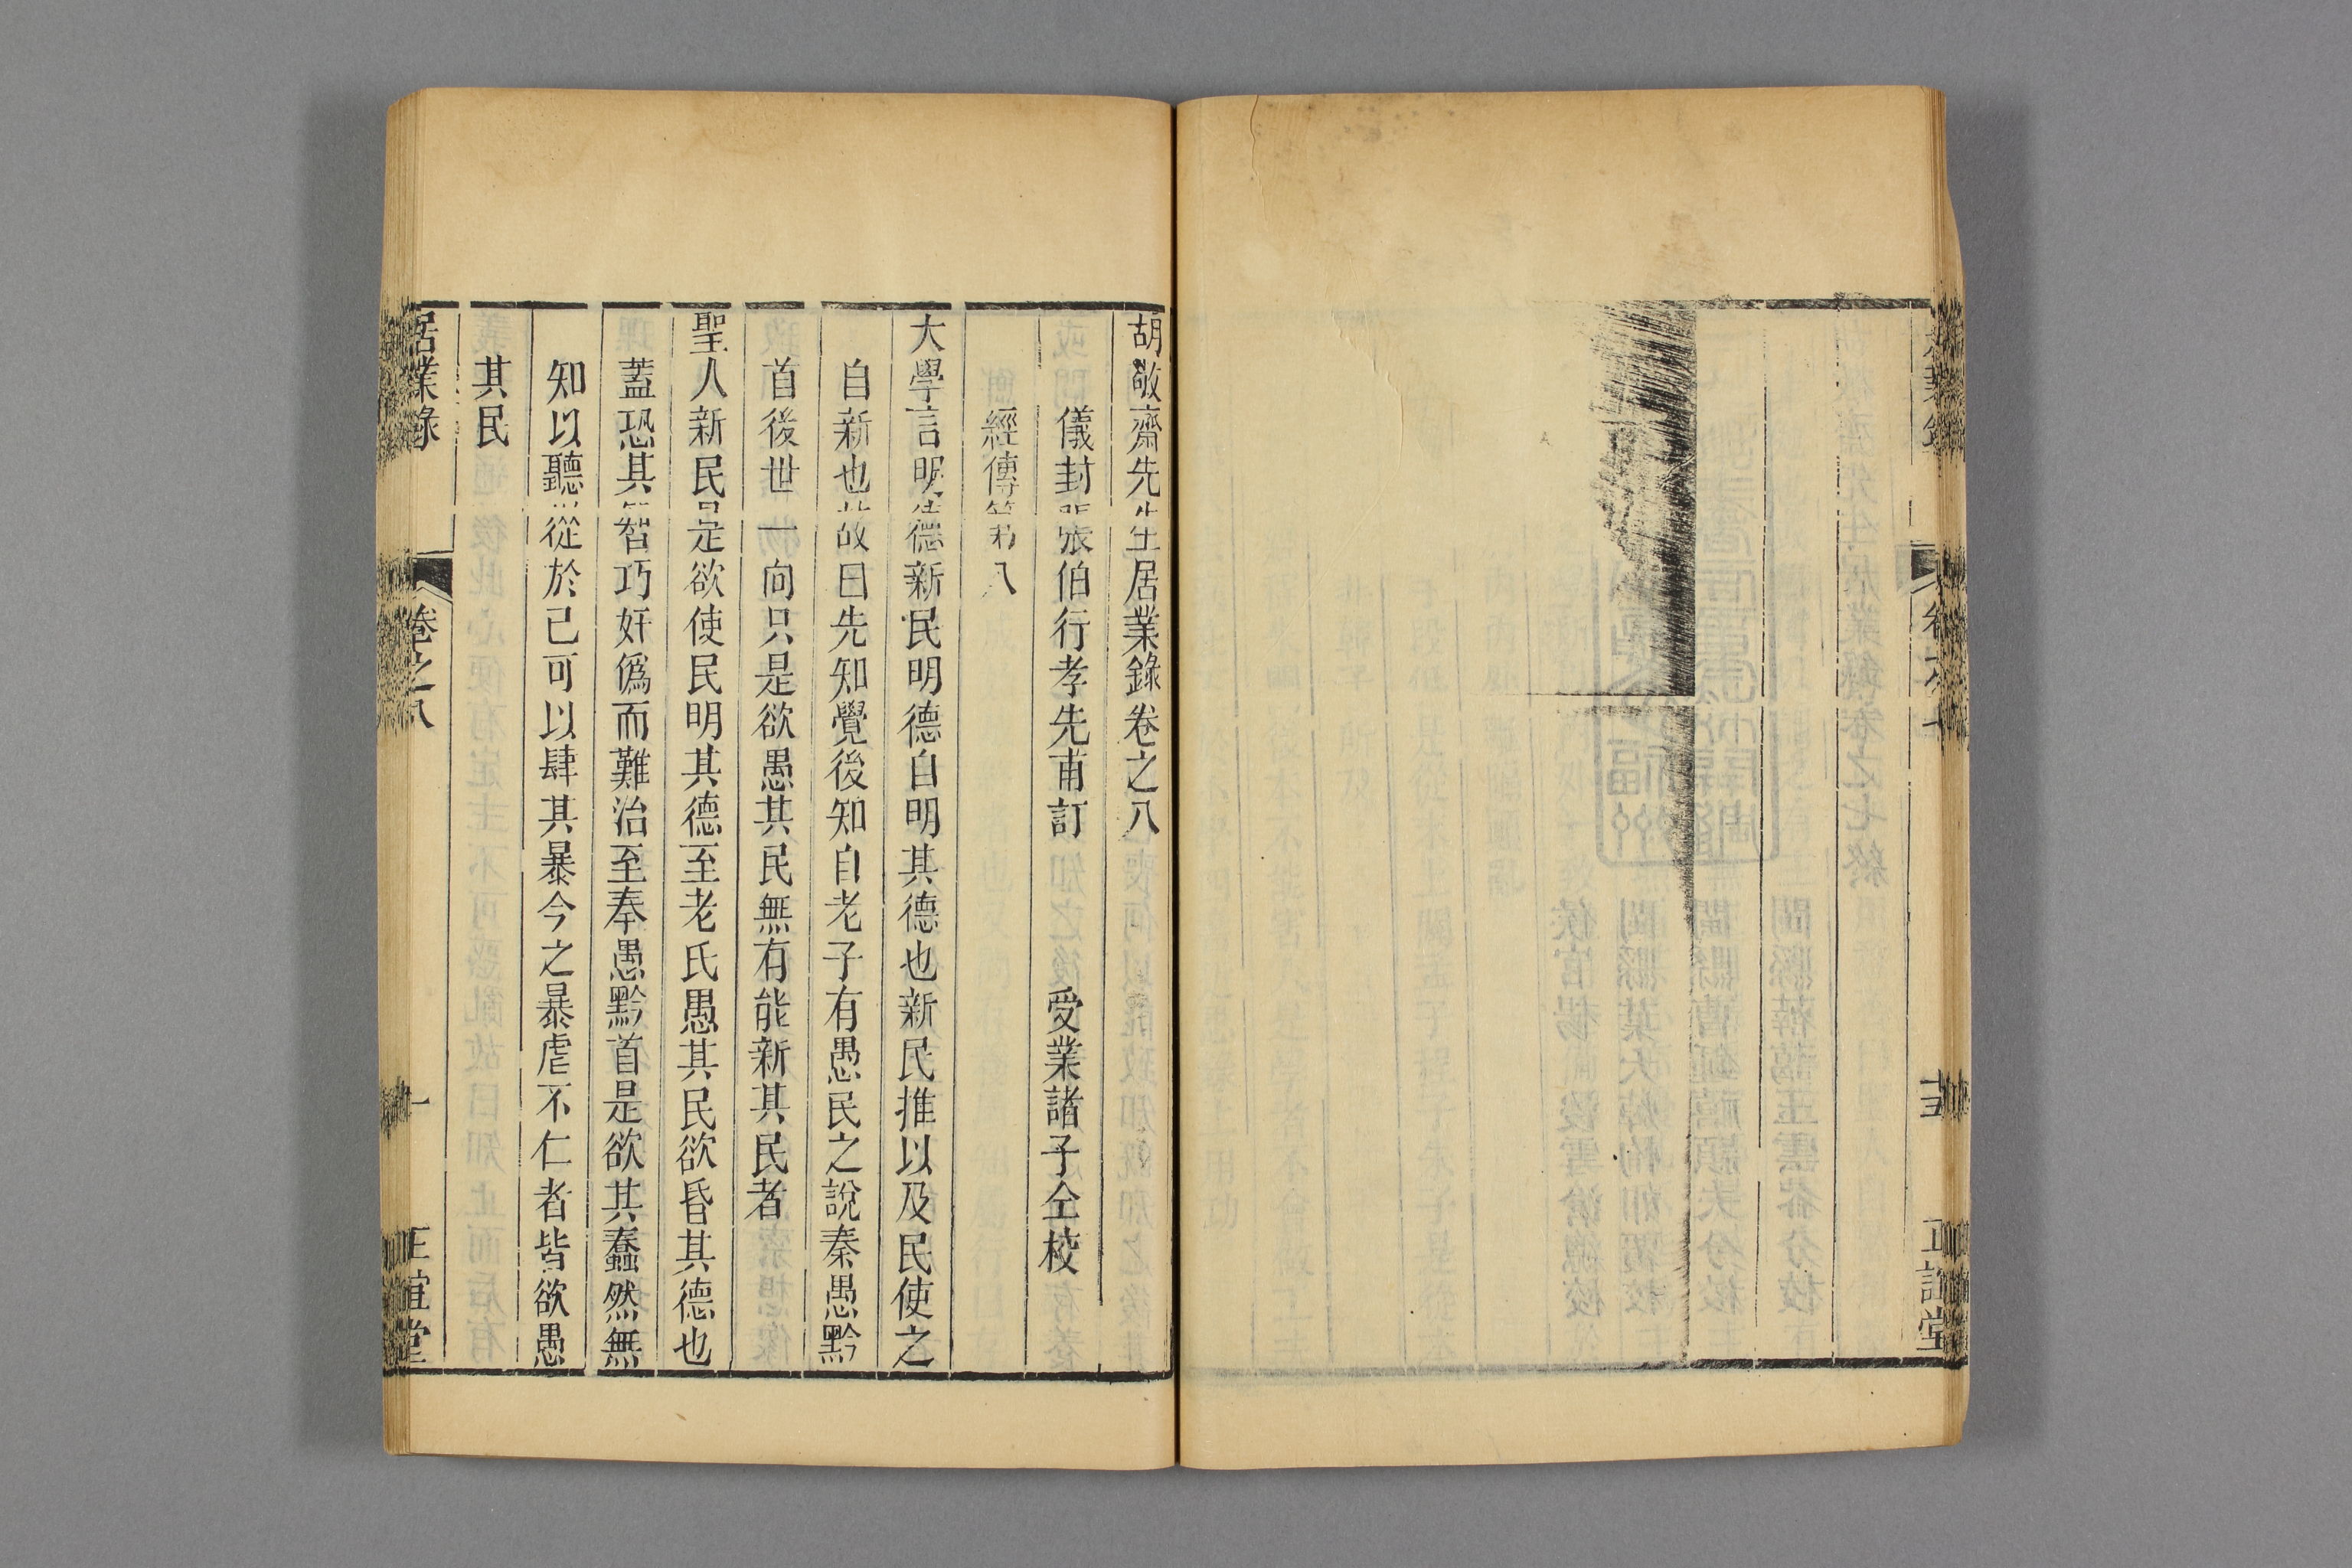 正誼堂
胡敬齋先生居業錄卷之八
儀封張伯行孝先甫訂　受業諸子仝校
經傳第八
大學言明德新民明德自明其德也新民推以及民使之
自新也故曰先知覺後知自老子有愚民之說秦愚黔
首後世一向只是欲愚其民無有能新其民者
聖人新民是欲使民明其德至老氏愚其民欲昏其德也
蓋恐其智巧奸僞而難治至奉愚黔首是欲其蠢然無
知以聽從於己可以肆其暴今之暴虐不仁者皆欲愚
其民
居業錄　卷之八　一　正誼堂